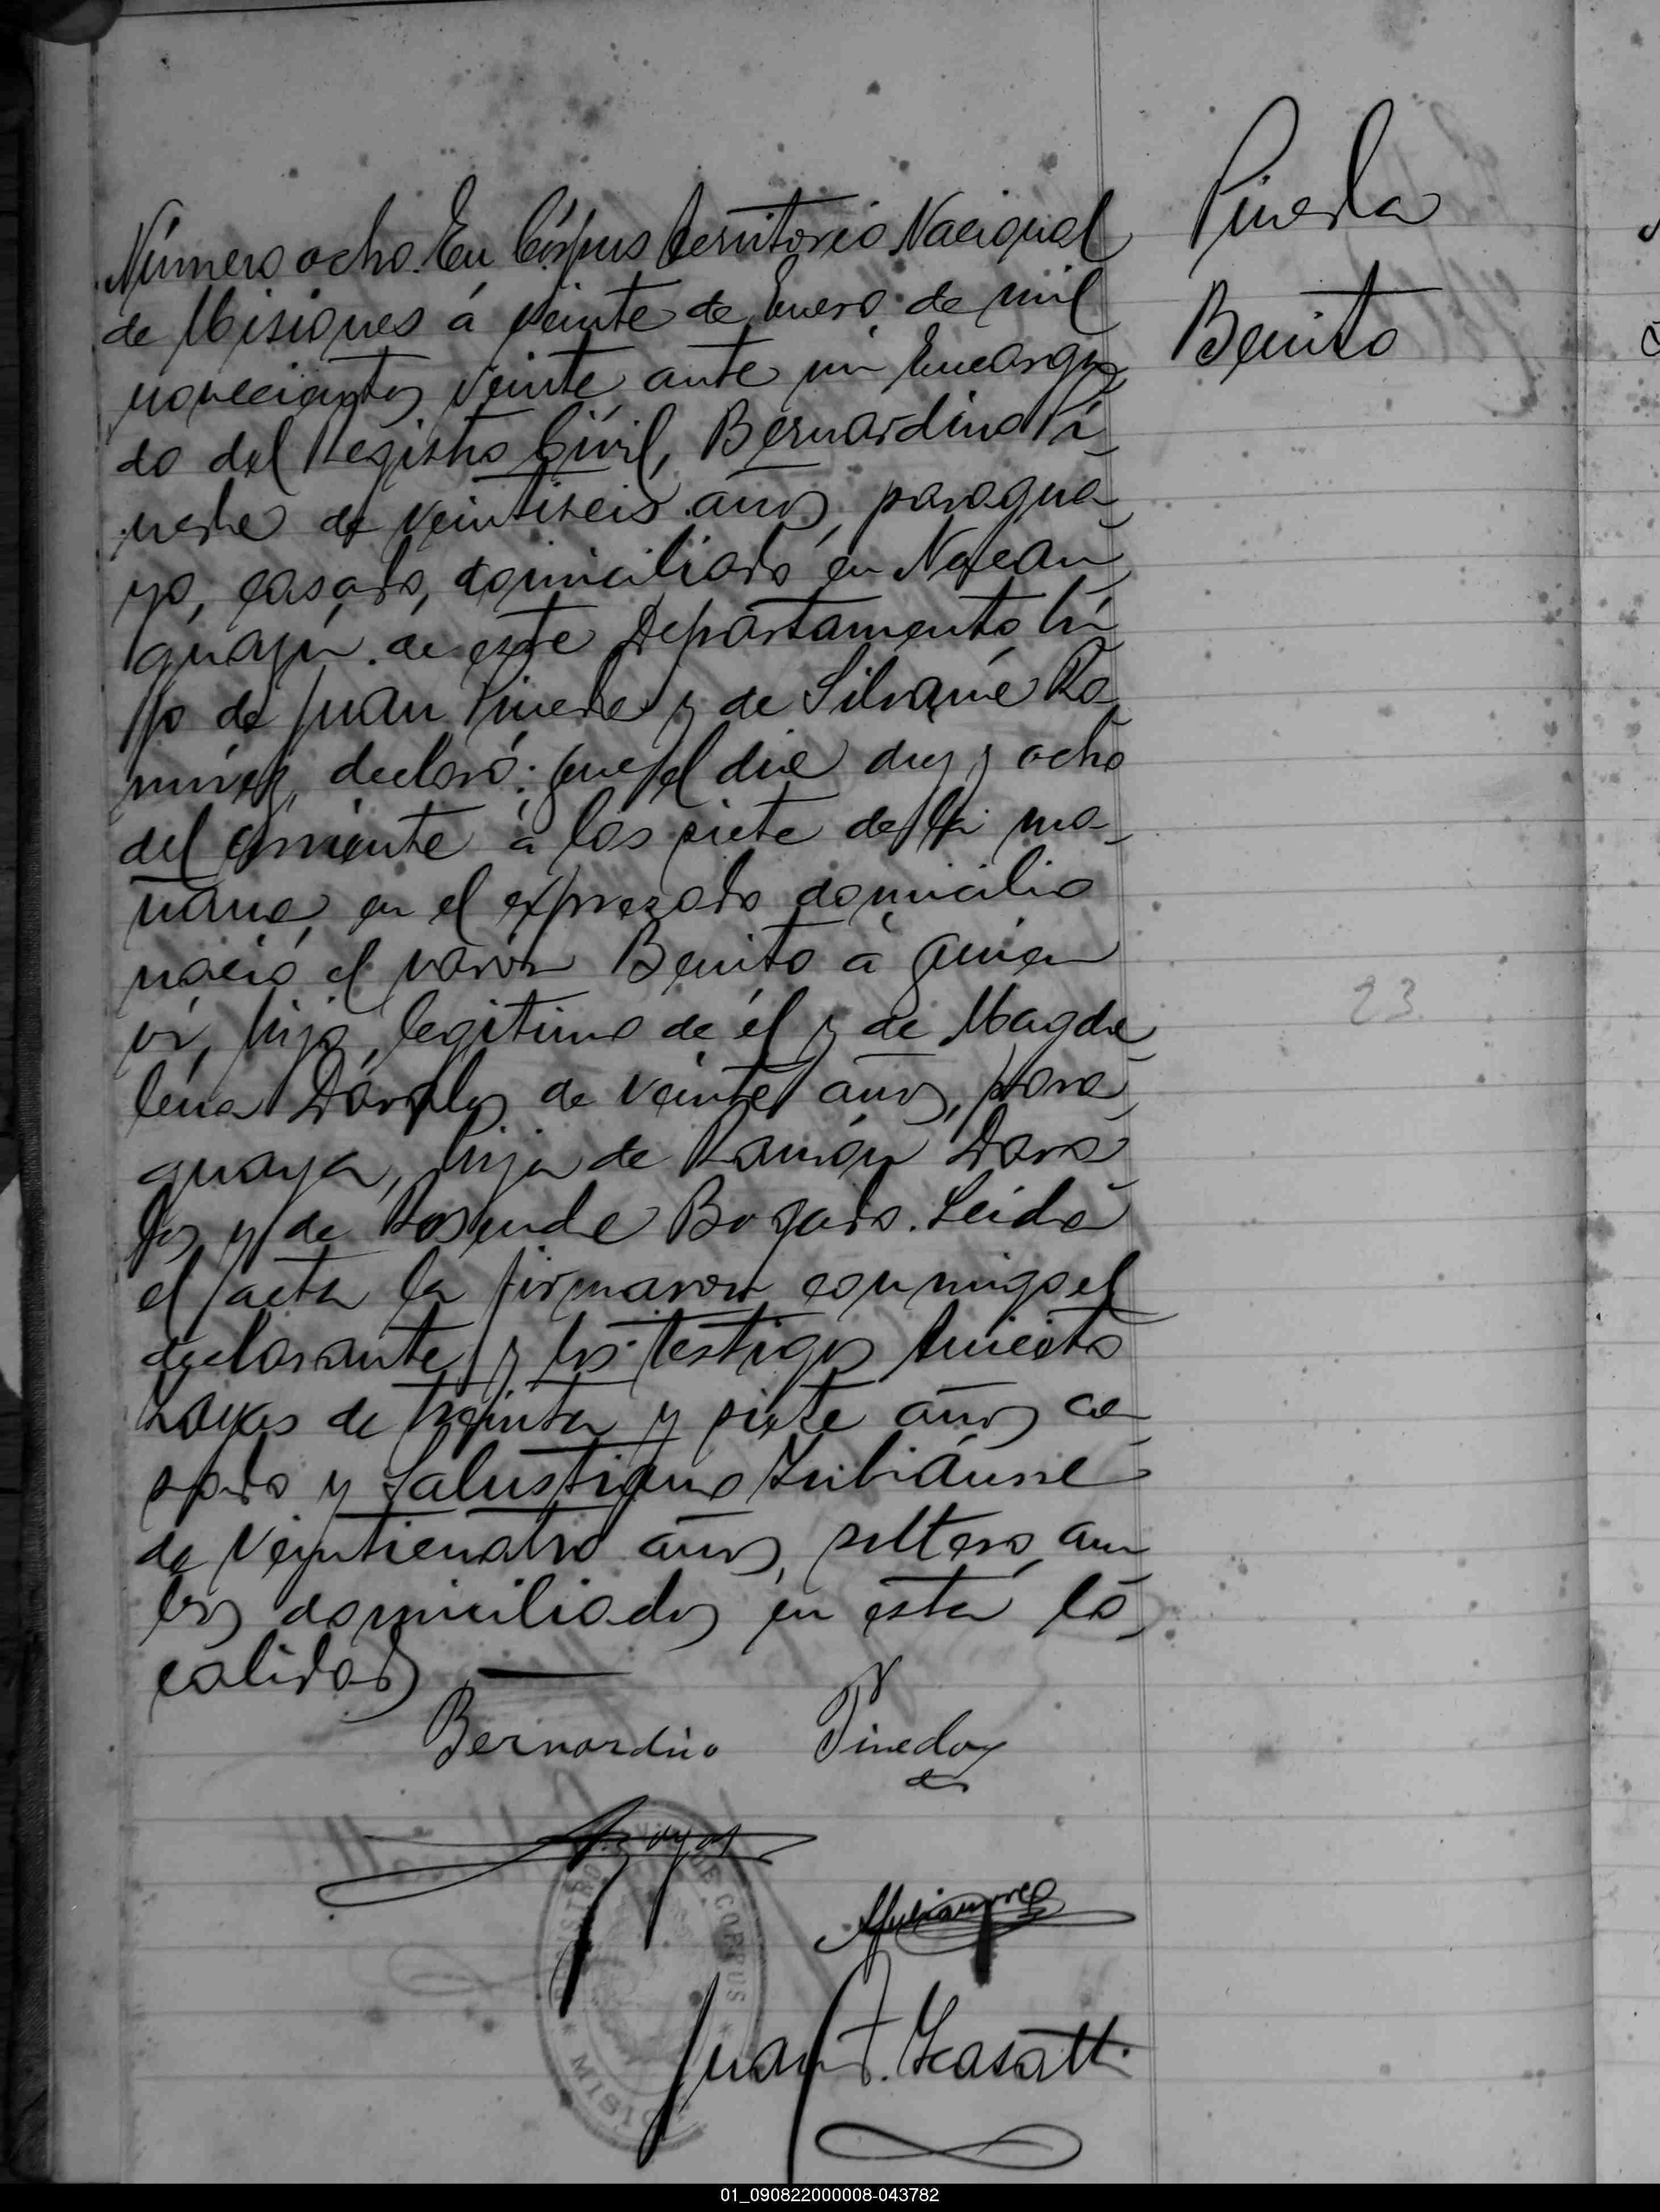 Pineda
Benito
Número ocho. En Córpus Territorio Nacional
de Misiones á veinte de Enero de mil
novecientos veinte ante mí Encarga
do del Registro Civil, Bernardino Pi
neda de veintiseis años, paragua
yo, casado, domiciliado en
de este Departamento hi
jo de Juan Pineda y de Silvana Ra
mirez, declaró: que el dia diez y ocho
del corriente á las siete de la ma
ñana, en el expresado domicilio
nació el varon Benito á quien
ví, hijo legitimo de él y de Magda
lena Dávalos de veinte años, para
guaya, hija de Ramón Dava
los y de Rosenda Bogado. Leida
el acta la firmaron conmigo el
declarante y los testigos Aniceto
de treinta y siete años ca
sado y Salustiano
de veinticuatro años, soltero, am
bos domiciliados en esta lo
calidad
23
Bernardino Pineda
REGISTRO DE CORPUS * MISIO
Juan